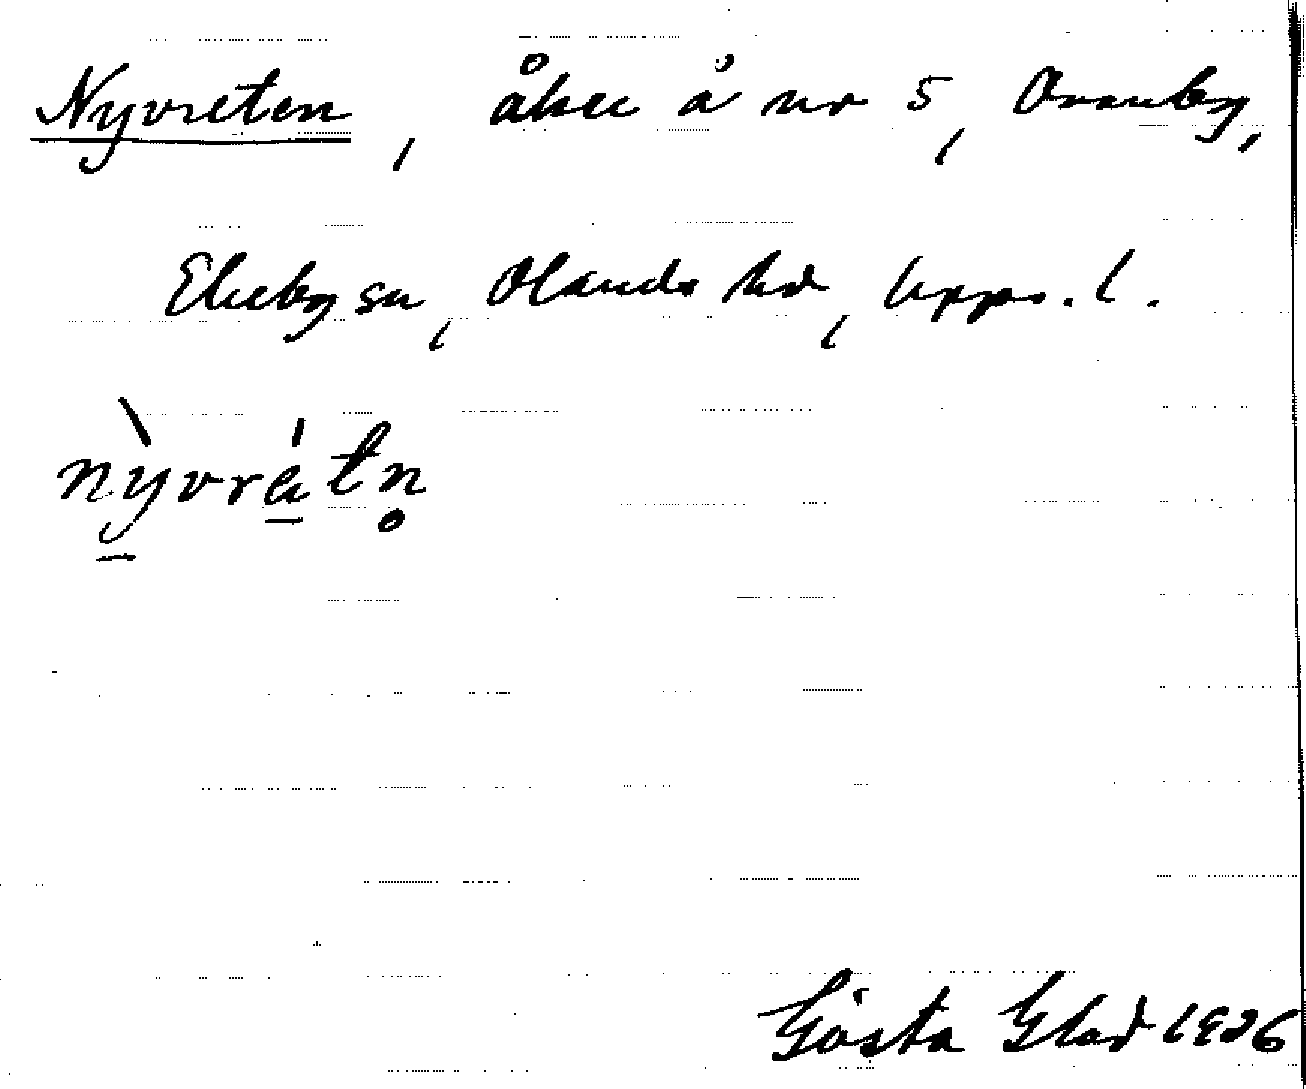 Nyvreten, åker å nr 5, Ovanby,
Ekeby sn, Olands hd, Upps. l.
nỳvrátn̥
Gösta Glad 1926